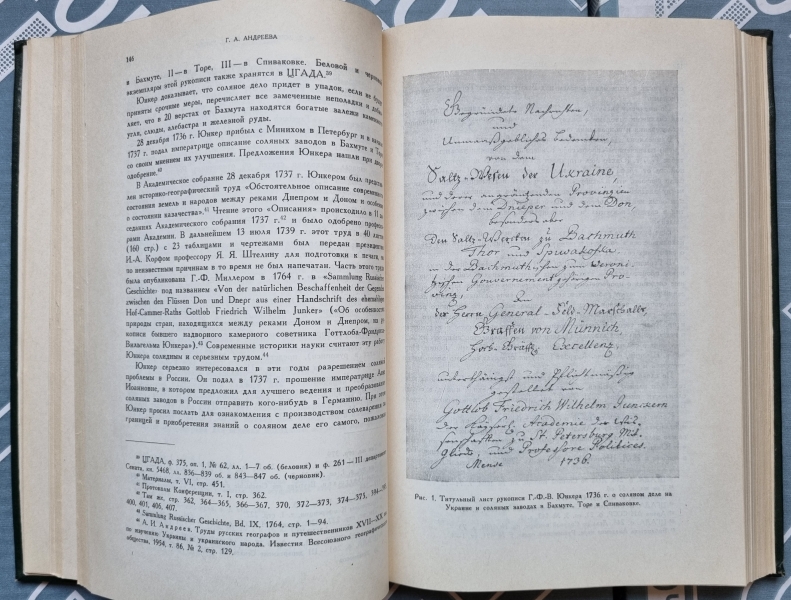 146
Г. А. АНДРЕЕВА
в Бахмуте, II — в Торе, III — в Спиваковке. Беловой и
экземпляры этой рукописи также хранятся в ЦГАДА.39
Юнкер доказывает, что соляное дело придет в упадок, если не
приняты срочные меры, перечисляет все замеченные неполадки и
ляет, что в 20 верстах от Бахмута находятся богатые залежи
угля, слюды, алебастра и железной руды.
28 декабря 1736 г. Юнкер прибыл с Минихом в Петербург и в
1737 г. подал императрице описание соляных заводов в Бахмуте и
со своим мнением их улучшения. Предложения Юнкера нашли при
одобрение.40
В Академическое собрание 28 декабря 1737 г. Юнкером был
лен историко-географический труд «Обстоятельное описание
состояния земель и народов между реками Днепром и Доном и
о состоянии казачества».41 Чтение этого «Описания» происходило в 11
седаниях Академического собрания 1737 г.42 и было одобрено
рами Академии. В дальнейшем 13 июля 1739 г. этот труд в 40
(160 стр.) с 23 таблицами и чертежами был передан
И.-А. Корфом профессору Я. Я. Штелину для подготовки к печати,
по неизвестным причинам в то время не был напечатан. Часть этого
была опубликована Г.-Ф. Миллером в 1764 г. в «Sammlung
Geschichte» под названием «Von der natürlichen Beschaffenheit der
zwischen den Flüssen Don und Dnepr aus einer Handschrift des ehemaligen
Hof-Cammer-Raths Gottlob Friedrich Wilhelm Junker» («Об особенностях
природы стран, находящихся между реками Доном и Днепром, из
кописи бывшего надворного камерного советника Готтлоба-Фридриха-
Вильгельма Юнкера»).43 Современные историки науки считают эту
Юнкера солидным и серьезным трудом.44
Юнкер серьезно интересовался в эти годы разрешением
проблемы в России. Он подал в 1737 г. прошение императрице
Иоанновне, в котором предложил для лучшего ведения и
соляных заводов в России отправить кого-нибудь в Германию. При этом
Юнкер просил послать для ознакомления с производством солеварения за
границей и приобретения знаний о соляном деле его самого,
39 ЦГАДА, ф. 375, оп. 1, № 62, лл. 1—7 об. (беловик) и ф. 261 — III
Сената, кн. 5468, лл. 836—839 об. и 843—847 об. (черновик).
40 Материалы, т. VI, стр. 451.
41 Протоколы Конференции, т. I, стр. 362.
42 Там же, стр. 362, 364—365, 366—367, 370, 372—373, 374—375,
400, 401, 406, 407.
43 Sammlung Russischer Geschichte, Bd. IX, 1764, стр. 1—94.
44 А. И. Андреев. Труды русских географов и путешественников XVII—XX
по изучению Украины и украинского народа. Известия Всесоюзного
общества, 1954, т. 86, № 2, стр. 129.
Begründete Nachrichten,
und
Unmaaßgebliches Bedencken,
von dem
Saltz-Wesen der Ukraine,
und derer angräntzenden Provinzien
zwischen dem Dnieper und dem Don,
besonders aber
Den Saltz-Wercken zu Bachmuth
Thor und Spiwakofka
in der Bachmuthischen zum Woroni-
schen Gouvernement gehörigen Pro-
vintz,
der Herrn General-Feld-Marschalls,
Graffen von Münnich
Excellenz,
unterthänigst und
gestellet von
Gottlob Friedrich Wilhelm Junckern
der Kayserl. Academie der Wis-
senschafften zu St. Petersburg Mit-
Gliede, und Professore Politices.
Mense 1736.
Рис. 1. Титульный лист рукописи Г.-Ф.-В. Юнкера 1736 г. о соляном деле на
Украине и соляных заводах в Бахмуте, Торе и Спиваковке.